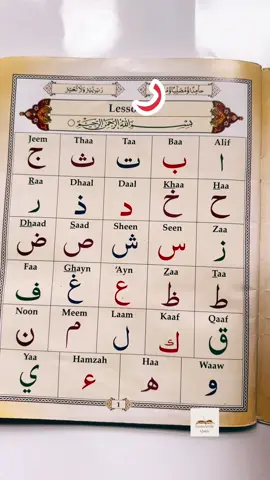 رَبِّ يَسِّرْ وَلَا تُعَسِّرْ
ر
Lesso
بِسْمِ اللهِ الرَّحْمٰنِ الرَّحِيْمِ
Jeem Thaa Taa Baa Alif
ا ب ت ث ج
Raa Dhaal Daal Khaa Haa
ح خ د ذ ر
Dhaad Saad Sheen Seen Zaa
ز س ش ص ض
Faa Ghayn ‘Ayn Zaa Taa
ط ظ ع غ ف
Noon Meem Laam Kaaf Qaaf
ق ك ل م ن
Yaa Hamzah Haa Waaw
و ه ء ي
1